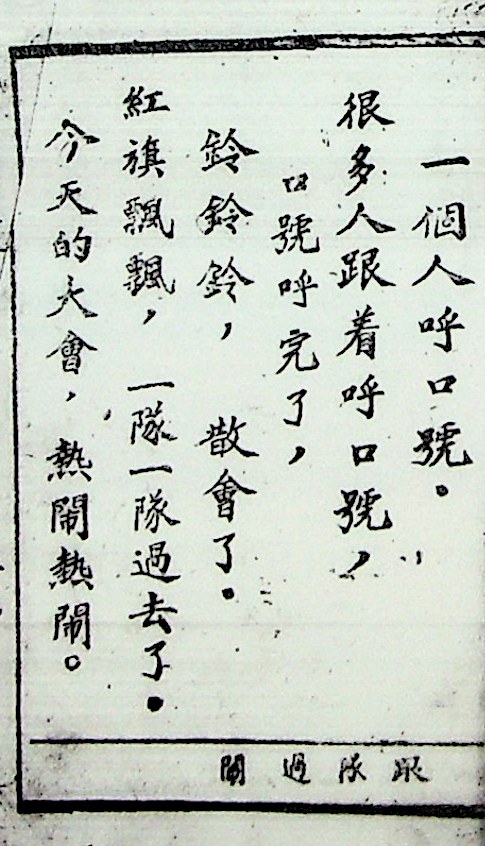 一個人呼口號。
很多人跟着呼口號，
口號呼完了，
鈴鈴鈴，散會了。
紅旗飄飄，一隊一隊過去了。
今天的大會，熱鬧熱鬧。
跟隊過鬧